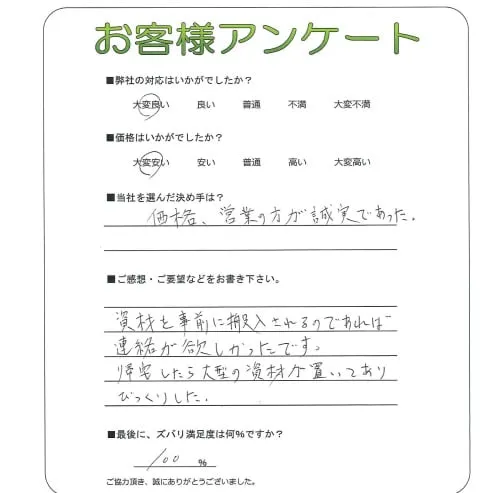 お客様アンケート
■弊社の対応はいかがでしたか？
大変良い 良い 普通 不満 大変不満
■価格はいかがでしたか？
大変安い 安い 普通 高い 大変高い
■当社を選んだ決め手は？
価格、営業の方が誠実であった.
■ご感想・ご要望などをお書き下さい。
資材を事前に搬入されるのであれば
連絡が欲しかったです。
帰宅したら大型の資材が置いてあり
びっくりした.
■最後に、ズバリ満足度は何%ですか？
100 %
ご協力頂き、誠にありがとうございました。